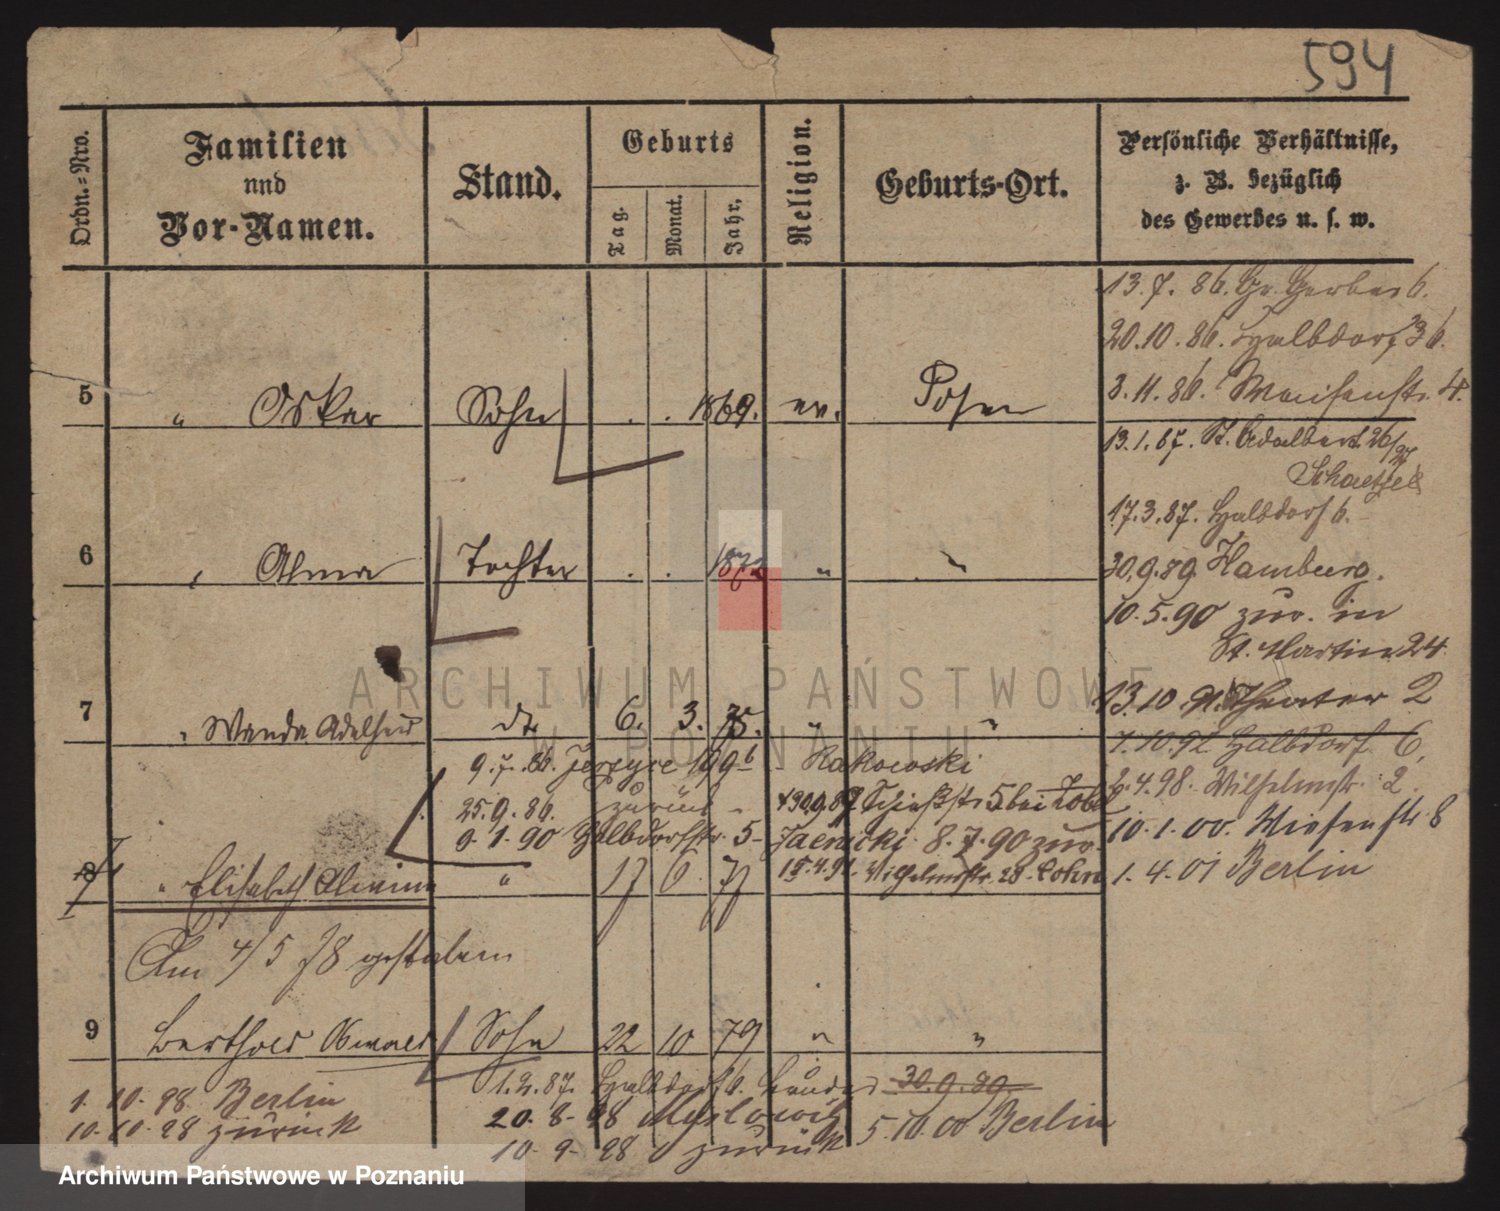 594
Ordn.=Nro.
Familien
und
Vor-Namen.
Stand.
Geburts
Tag.
Monat.
Jahr.
Religion.
Geburts-Ort.
Persönliche Verhältnisse,
z. B. bezüglich
des Gewerbes u. s. w.
13.7.86. Gr. Gerber 6.
20.10.86. Halbdorf 36.
3.11.86. Waisenstr. 4.
5 " Oskar Sohn . . 1869. ev. Posen
13.1.87. St. Adalbert 26/27
17.3.87. Halbdorf 6.
6 " Alma Tochter . . 1872 " "
30.9.89 Hamburg.
10.5.90 zur. in
St. Martin 24.
13.10.91. Theater 2
7 " Wanda Adelheid dt. 6. 3. 75. " "
7.10.92 Halbdorf 6,
9.7.86. Jersyce 199b Rakowski
2.4.98. Wilhelmstr. 2.
25.9.86. zurück - 30.9.89 Schießstr 5 bei
9.1.90 Halbdorfstr. 5- Jaenicki 8.7.90 zur.
10.1.00. Wiesenstr 8
8 " Elisabeth Alwine " 17 6. 77 15.4.91. Wilhelmstr. 28. Cohn
1.4.01 Berlin
Am 4/5 78 gestorben
9 Berthold Oswald Sohn 22 10 79 " "
1.2.87. Halbdorf 6. 30.9.89
1. 10. 98 Berlin
20. 8. 98 Myslowitz
5.10.00 Berlin
10. 10. 98 zurück
10. 9. 98 zurück
ARCHIWUM PAŃSTWOWE
W POZNANIU
Archiwum Państwowe w Poznaniu